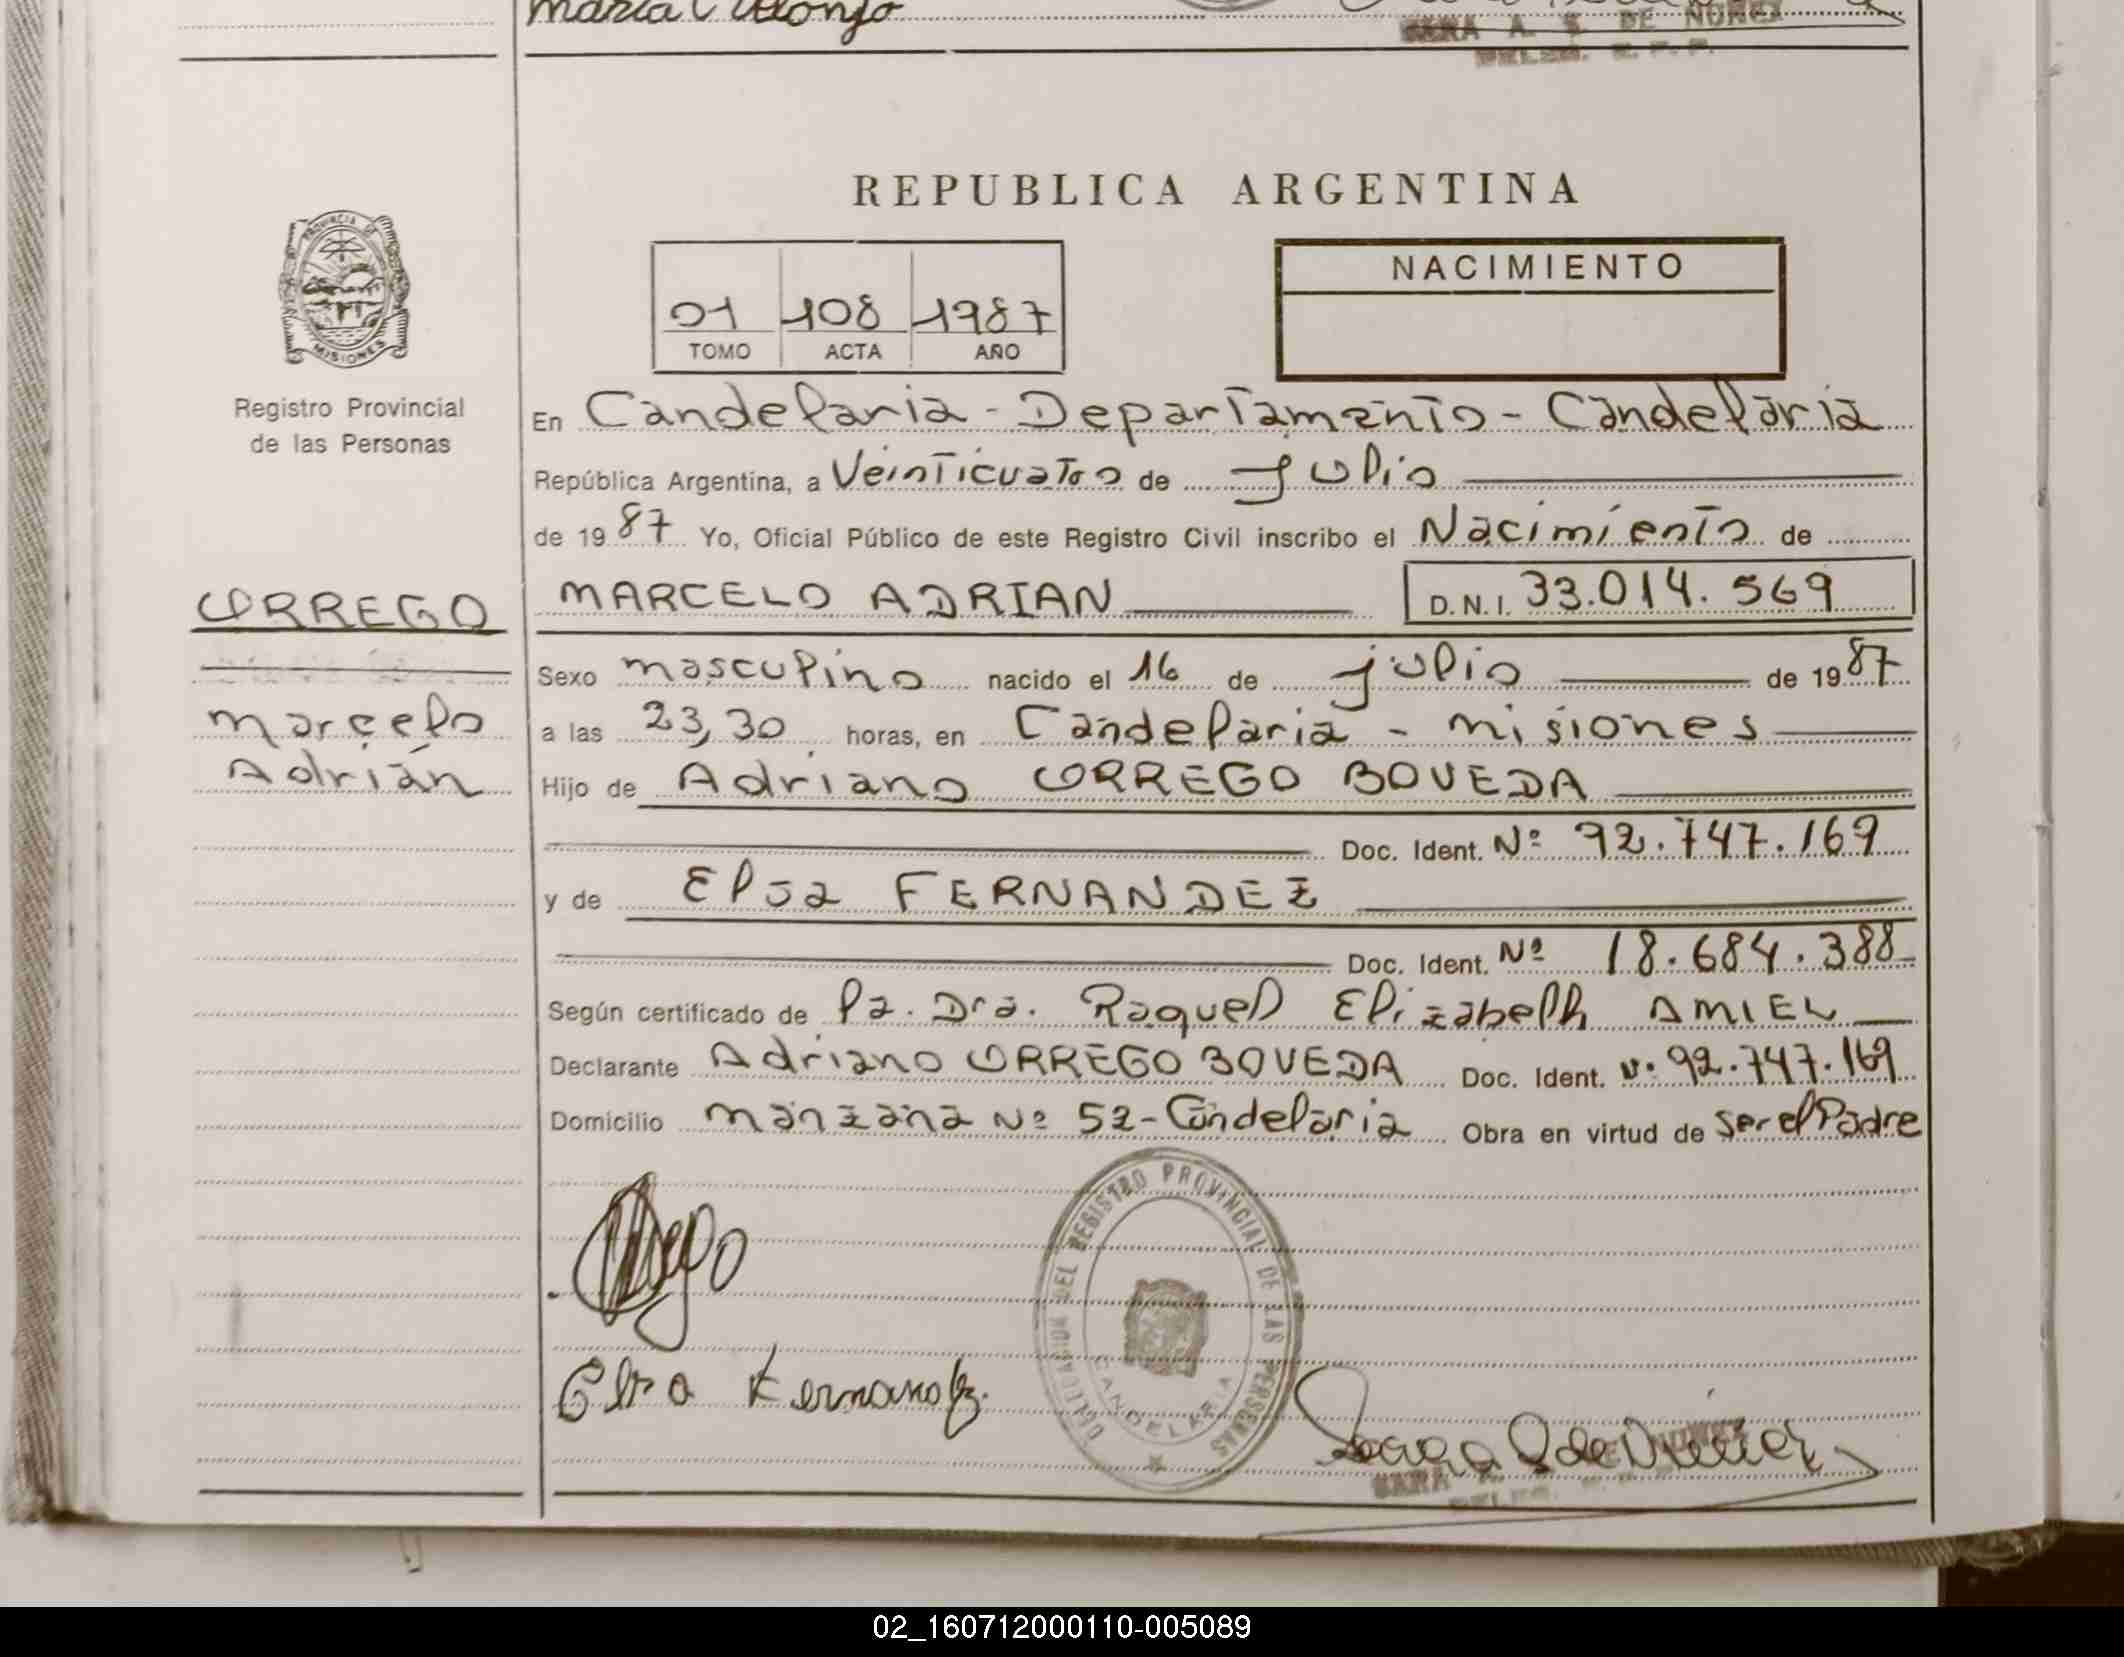 María
SARA A. S. DE NUÑEZ
DELEG. R. P. P.
REPUBLICA ARGENTINA
PROVINCIA DE MISIONES
Registro Provincial
de las Personas
01 108 1987
TOMO ACTA AÑO
NACIMIENTO
En Candelaria - Departamento - Candelaria
República Argentina, a Veinticuatro de Julio
de 1987 Yo, Oficial Público de este Registro Civil inscribo el Nacimiento de
ORREGO
MARCELO ADRIAN D.N.I. 33.014.569
Marcelo
Adrián
Sexo masculino nacido el 16 de julio de 1987
a las 23,30 horas, en Candelaria - Misiones
Hijo de Adriano ORREGO BOVEDA
Doc. Ident. Nº 92.747.169
y de Elsa FERNANDEZ
Doc. Ident. Nº 18.684.388
Según certificado de la. Dra. Raquel Elizabeth AMIEL
Declarante Adriano ORREGO BOVEDA Doc. Ident. Nº 92.747.169
Domicilio Manzana Nº 52 - Candelaria Obra en virtud de ser el Padre
DELEGACION DEL REGISTRO PROVINCIAL DE LAS PERSONAS
CANDELARIA
Elsa Fernandez.
Sara S de Núñez
SARA A. S. DE NUÑEZ
02_160712000110-005089